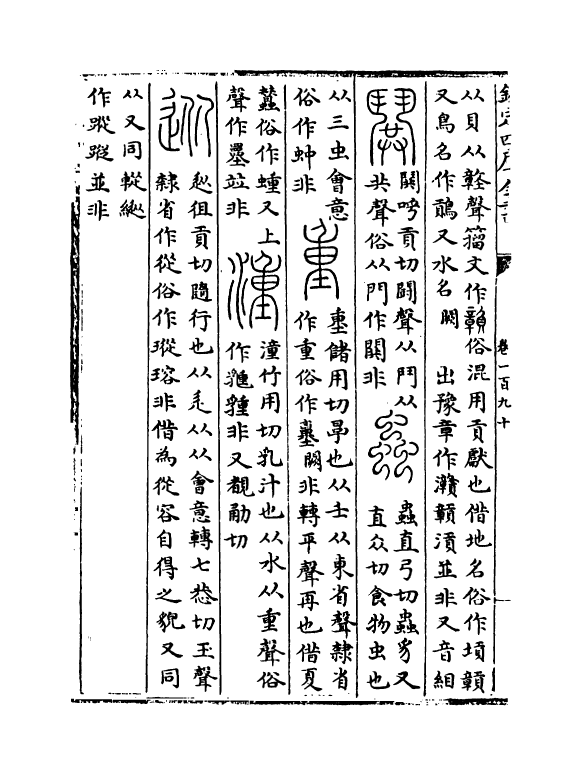 欽定四庫全書
卷一百九十
从貝从竷聲籀文作贑俗混用貢獻也借地名俗作墳贛
又鳥名作鶮又水名闕　出豫章作灨贑瀆並非又音紺
鬨鬨哼貢切鬭聲从鬥从
共聲俗从門作閧非
蟲蟲直弓切蟲豸又
直众切食物虫也
从三虫會意
俗作虫中非
重㙲儲用切厚也从壬从東省聲隸省
作重俗作㙲闕非轉平聲再也借夏
蠶俗作蝩又上
聲作墨竝非
湩潼竹用切乳汁也从水从重聲俗
作㹐䝑非又覩勈切
从赲徂貢切隨行也从辵从从會意轉七恭切玉聲
隸省作從俗作瑽瑢非借為從容自得之貌又同
从又同樅縱
作蹤蹝並非